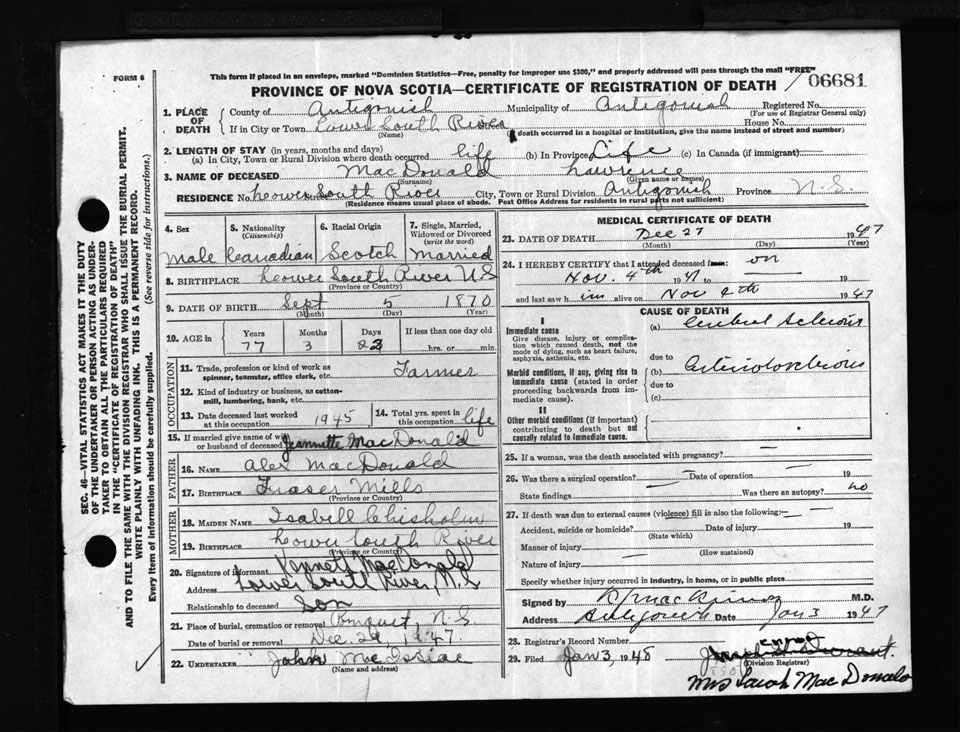 FORM 6
This form if placed in an envelope, marked "Dominion Statistics—Free, penalty for improper use $300," and properly addressed will pass through the mail "FREE"
06681
PROVINCE OF NOVA SCOTIA—CERTIFICATE OF REGISTRATION OF DEATH
1. PLACE OF DEATH County of Antigonish Municipality of Antigonish Registered No.
(For use of Registrar General only)
If in City or Town Lower South River House No.
(Name) If death occurred in a hospital or institution, give the name instead of street and number)
2. LENGTH OF STAY (in years, months and days)
(a) In City, Town or Rural Division where death occurred life (b) In Province Life (c) In Canada (if immigrant) —
3. NAME OF DECEASED MacDonald Lawrence
(Surname) (Given name or names)
RESIDENCE No. Lower South River City, Town or Rural Division Antigonish Province N.S.
(Residence means usual place of abode. Post Office Address for residents in rural parts not sufficient)
4. Sex 5. Nationality (Citizenship) 6. Racial Origin 7. Single, Married, Widowed or Divorced (write the word)
Male Canadian Scotch Married
8. BIRTHPLACE Lower South River N S
(Province or Country)
9. DATE OF BIRTH Sept 5 1870
(Month) (Day) (Year)
10. AGE in Years Months Days If less than one day old
77 3 23 hrs. or min.
OCCUPATION
11. Trade, profession or kind of work as spinner, teamster, office clerk, etc. Farmer
12. Kind of industry or business, as cotton-mill, lumbering, bank, etc.
13. Date deceased last worked at this occupation 1945 14. Total yrs. spent in this occupation life
15. If married give name of wife or husband of deceased Jeannette MacDonald
FATHER
16. NAME Alex MacDonald
17. BIRTHPLACE Fraser Mills
(Province or Country)
MOTHER
18. MAIDEN NAME Isabell Chisholm
19. BIRTHPLACE Lower South River
(Province or Country)
20. Signature of informant Kennett MacDonald
Address Lower South River, N.S
Relationship to deceased Son
21. Place of burial, cremation or removal Pomquet, N.S
Date of burial or removal Dec. 29, 1947
22. UNDERTAKER John MacIssiac
(Name and address)
MEDICAL CERTIFICATE OF DEATH
23. DATE OF DEATH Dec 27 1947
(Month) (Day) (Year)
24. I HEREBY CERTIFY that I attended deceased from: on
Nov. 4th 1947 19
and last saw him alive on Nov 4th 1947
CAUSE OF DEATH
I
Immediate cause
Give disease, injury or complication which caused death, not the mode of dying, such as heart failure, asphyxia, asthenia, etc.
(a) Cerebral Sclerosis
due to
Morbid conditions, if any, giving rise to immediate cause (stated in order proceeding backwards from immediate cause).
(b) Arteriosclerosis
due to
(c)
II
Other morbid conditions (if important) contributing to death but not causally related to immediate cause.
25. If a woman, was the death associated with pregnancy? —
26. Was there a surgical operation? — Date of operation 19
State findings Was there an autopsy? no
27. If death was due to external causes (violence) fill in also the following:—
Accident, suicide or homicide? Date of injury 19
(State which)
Manner of injury
(How sustained)
Nature of injury
Specify whether injury occurred in industry, in home, or in public place
Signed by M.D.
Address Antigonish Date Jan 3 1947
28. Registrar's Record Number
29. Filed Jan 3, 1948
(Division Registrar)
Mrs Sarah MacDonald
SEC. 46—VITAL STATISTICS ACT MAKES IT THE DUTY
OF THE UNDERTAKER OR PERSON ACTING AS UNDERTAKER TO OBTAIN ALL THE PARTICULARS REQUIRED
IN THE "CERTIFICATE OF REGISTRATION OF DEATH"
AND TO FILE THE SAME WITH THE DIVISION REGISTRAR WHO SHALL ISSUE THE BURIAL PERMIT.
WRITE PLAINLY WITH UNFADING INK. THIS IS A PERMANENT RECORD.
Every item of information should be carefully supplied. (See reverse side for instructions.)